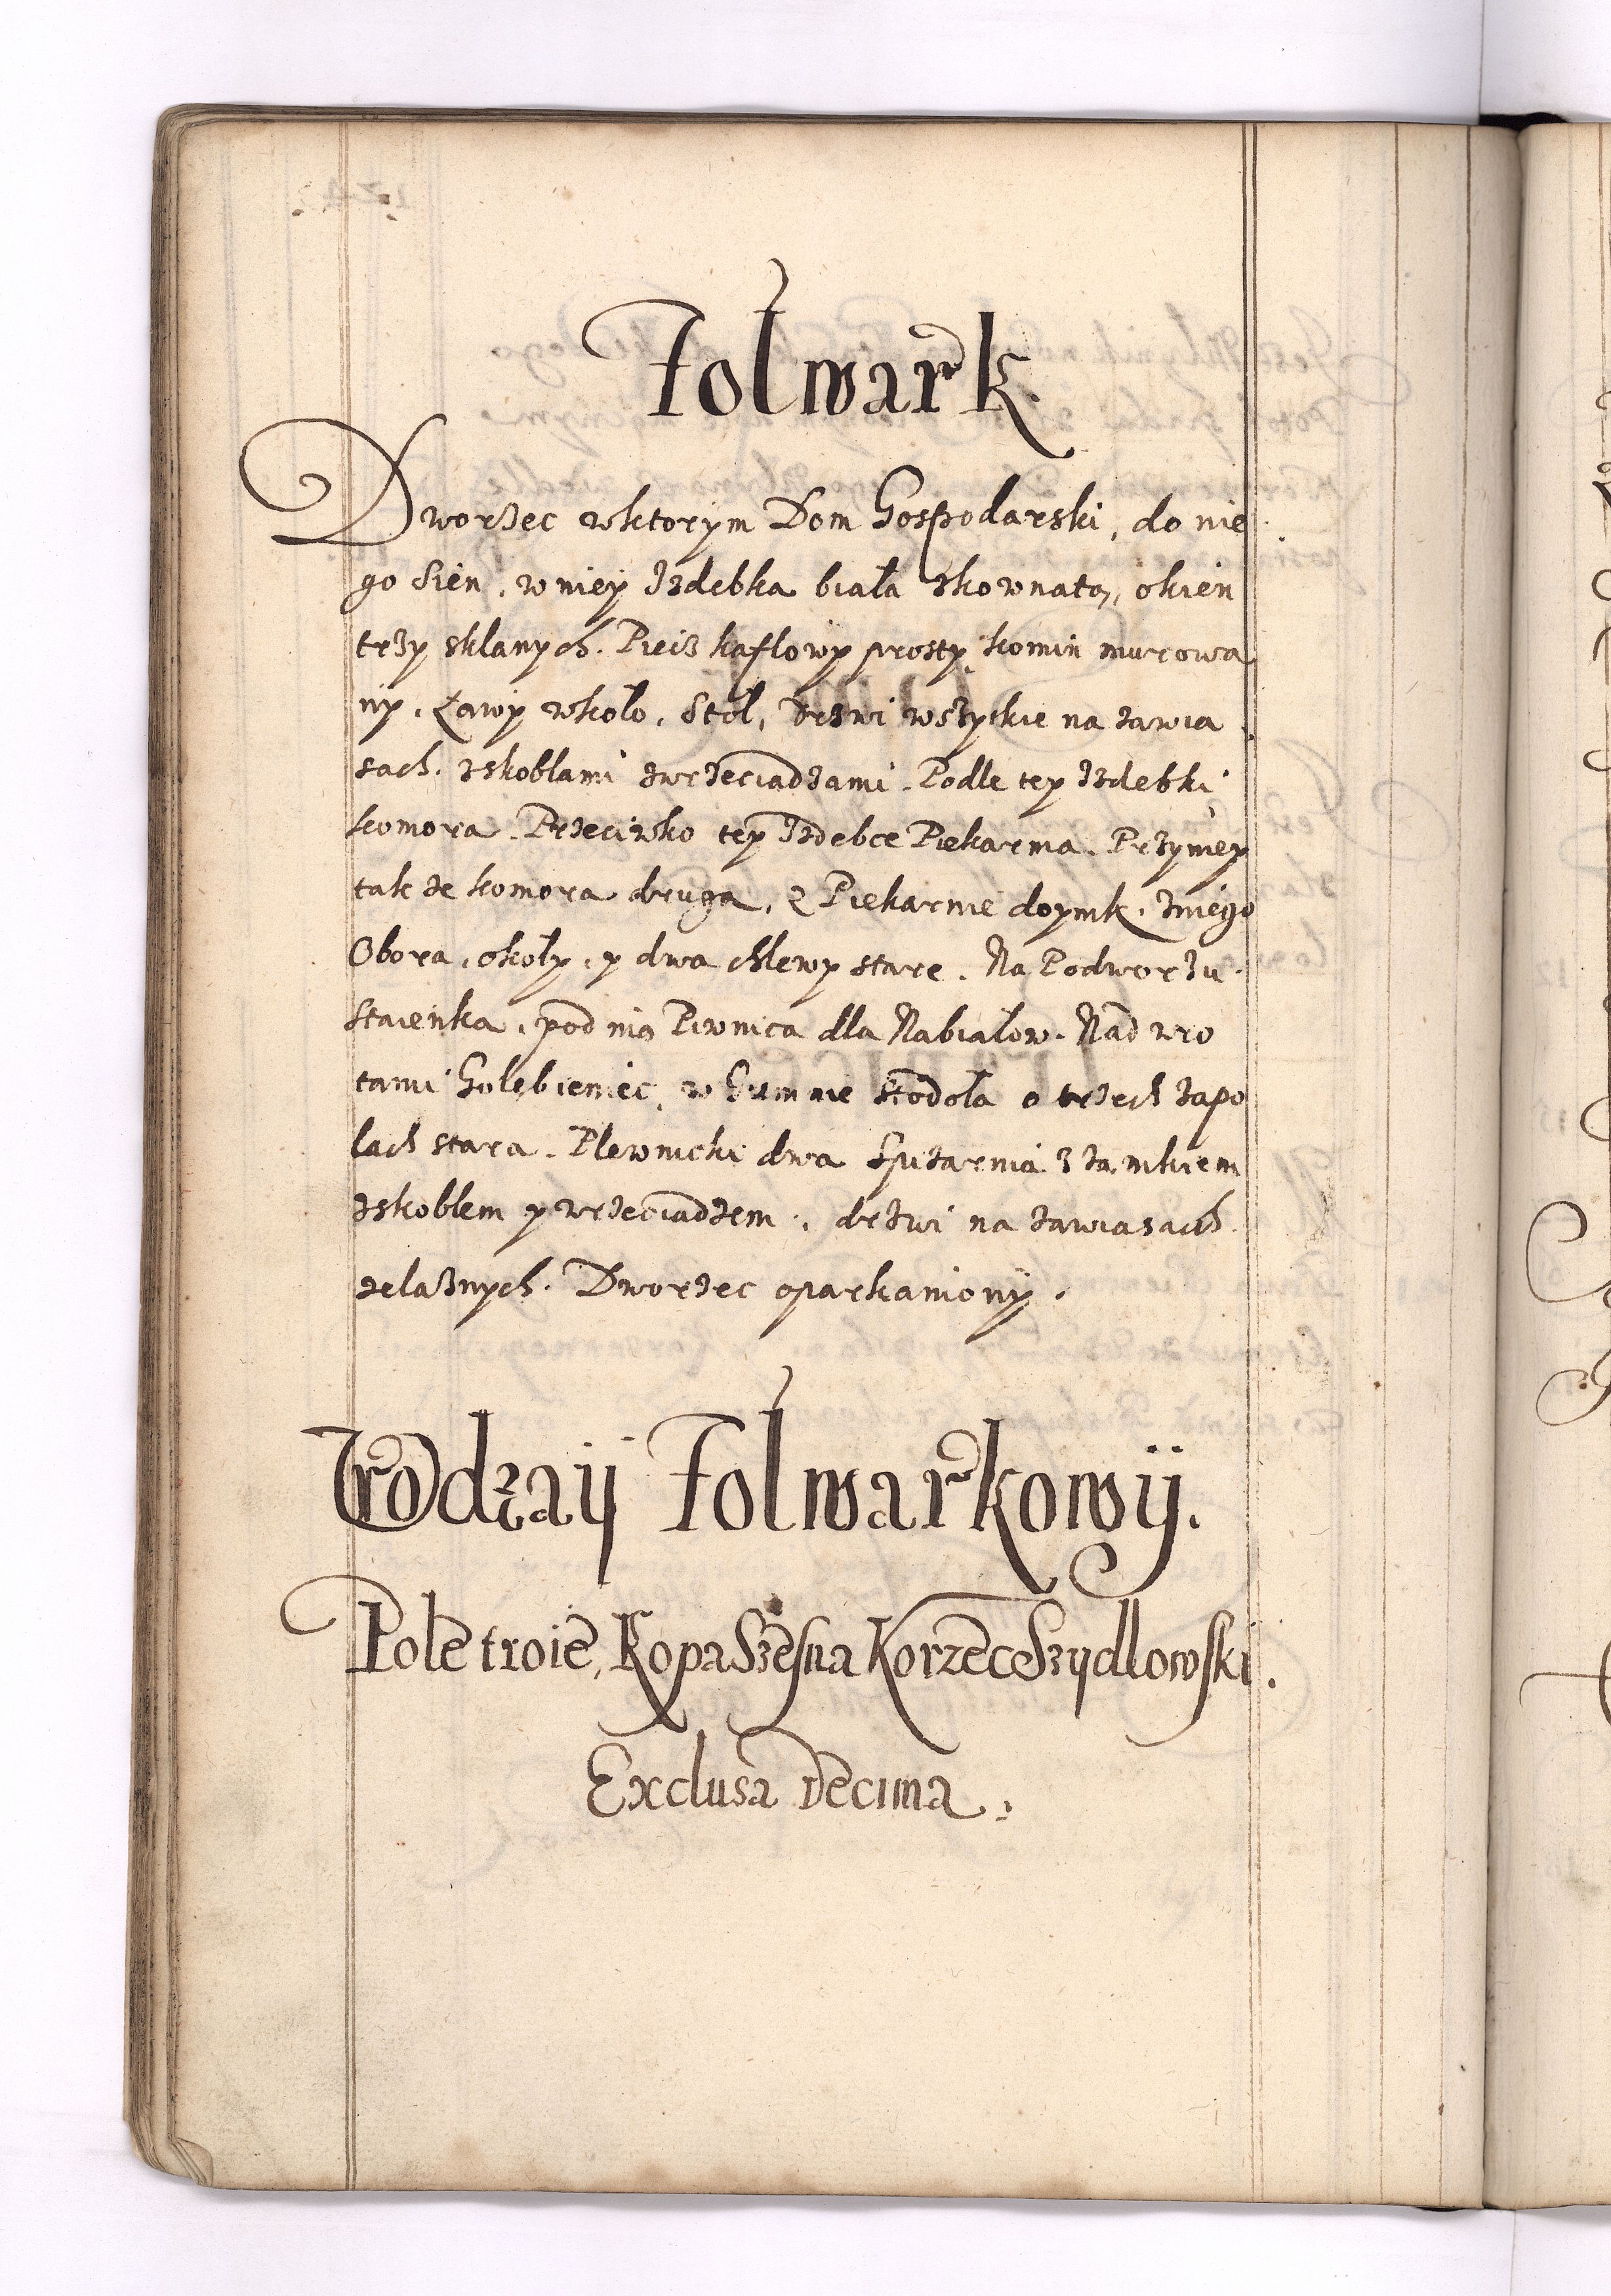 Folwark
Dworzec wktorym Dom Gospodarski, do nie
go Sień, w niey Izdebka biała zkownatą, okien
trzy sklanych. Piec kaflowy prosty, komin murowa
ny. Ławy wkoło, Stół, Drzwi wszyskie na zawia
sach. zskoblami zwrzeciadzami. Podle tey Izdebki
komora. Przeciwko tey Izdebce Piekarnia. Przy niey
tak ze komora druga, z Piekarnie doynik. zniego
Obora, okoły, y dwa chlewy stare. Na Podworzu
Staienka, pod nią Piwnica dla Nabiałow. Nad wro
tami Gołębieniec, w Gumnie stodoła o trzech zapo
lach stara. Plewnicki dwa Spizarnia z zamkiem
zskoblem y wrzeciadzem, drzwi na zawiasach
zelaznych. Dworzec oparkaniony.
Urodzaij Folwarkowij.
Pole troie, Kopa Szesna Korzec Szydlowski.
Exclusa Decima.